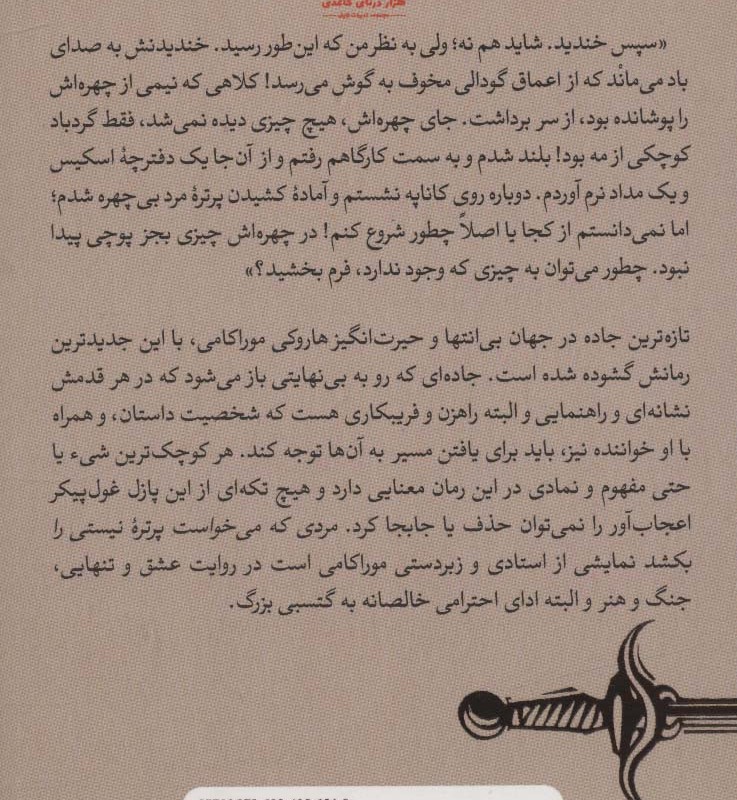 هزار دریای کاغذی
«سپس خندید. شاید هم نه؛ ولی به نظر من که این‌طور رسید. خندیدنش به صدای
باد می‌مانْد که از اعماق گودالی مخوف به گوش می‌رسد! کلاهی که نیمی از چهره‌اش
را پوشانده بود، از سر برداشت. جای چهره‌اش، هیچ چیزی دیده نمی‌شد، فقط گردباد
کوچکی از مه بود! بلند شدم و به سمت کارگاهم رفتم و از آن‌جا یک دفترچهٔ اسکیس
و یک مداد نرم آوردم. دوباره روی کاناپه نشستم و آمادهٔ کشیدن پرترهٔ مرد بی‌چهره شدم؛
اما نمی‌دانستم از کجا یا اصلاً چطور شروع کنم! در چهره‌اش چیزی بجز پوچی پیدا
نبود. چطور می‌توان به چیزی که وجود ندارد، فرم بخشید؟»
تازه‌ترین جاده در جهان بی‌انتها و حیرت‌انگیز هاروکی موراکامی، با این جدیدترین
رمانش گشوده شده است. جاده‌ای که رو به بی‌نهایتی باز می‌شود که در هر قدمش
نشانه‌ای و راهنمایی و البته راهزن و فریبکاری هست که شخصیت داستان، و همراه
با او خواننده نیز، باید برای یافتن مسیر به آن‌ها توجه کند. هر کوچک‌ترین شیء یا
حتی مفهوم و نمادی در این رمان معنایی دارد و هیچ تکه‌ای از این پازل غول‌پیکر
اعجاب‌آور را نمی‌توان حذف یا جابجا کرد. مردی که می‌خواست پرترهٔ نیستی را
بکشد نمایشی از استادی و زبردستی موراکامی است در روایت عشق و تنهایی،
جنگ و هنر و البته ادای احترامی خالصانه به گتسبی بزرگ.